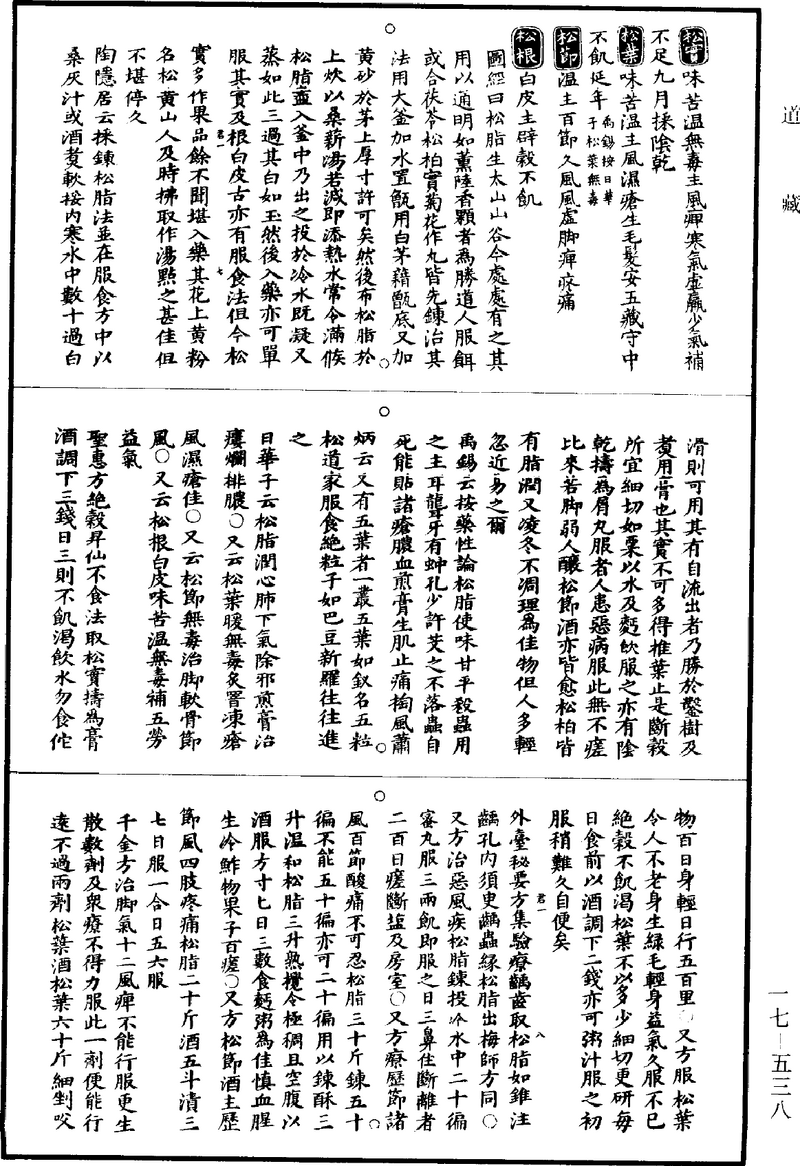 道藏
松實味苦溫無毒主風痺寒氣虛羸少氣補
不足九月採陰乾
松葉味苦溫主風濕瘡生毛髮安五藏守中
不飢延年禹錫按日華子松葉無毒
松節溫主百節久風風虛脚痺疼痛
松根白皮主辟穀不飢
圖經曰松脂生太山山谷今處處有之其
用以通明如薰陸香顆者爲勝道人服餌
或合茯苓松柏實菊花作丸皆先鍊治其
法用大釜加水置甑用白茅藉甑底又加
黃砂於茅上厚寸許可矣然後布松脂於
上炊以桑薪湯若減即添熱水常令滿候
松脂盡入釜中乃出之投於冷水既凝又
蒸如此三過其白如玉然後入藥亦可單
服其實及根白皮古亦有服食法但今松
君一
七
實多作果品餘不聞堪入藥其花上黃粉
名松黃山人及時拂取作湯點之甚佳但
不堪停久
陶隱居云採鍊松脂法並在服食方中以
桑灰汁或酒煑軟挼内寒水中數十過白
滑則可用其有自流出者乃勝於鑿樹及
煑用膏也其實不可多得惟葉止是斷穀
所宜細切如粟以水及麪飲服之亦有陰
乾擣爲屑丸服者人患惡病服此無不瘥
比來苦脚弱人釀松節酒亦皆愈松柏皆
有脂潤又凌冬不凋理爲佳物但人多輕
忽近易之爾
禹錫云按藥性論松脂使味甘平殺蟲用
之主耳聾牙有蚛孔少許㕮之不落蟲自
死能貼諸瘡膿血煎膏生肌止痛搊風蕭
炳云又有五葉者一叢五葉如釵名五粒
松道家服食絶粒子如巴豆新羅往往進
之
日華子云松脂潤心肺下氣除邪煎膏治
瘻爛排膿○又云松葉暖無毒灸罯凍瘡
風濕瘡佳○又云松節無毒治脚軟骨節
風○又云松根白皮味苦溫無毒補五勞
益氣
聖惠方絶穀昇仙不食法取松實擣爲膏
酒調下三錢日三則不飢渴飲水勿食佗
物百日身輕日行五百里○又方服松葉
令人不老身生綠毛輕身益氣久服不已
絶穀不飢渴松葉不以多少細切更研每
日食前以酒調下二錢亦可粥汁服之初
服稍難久自便矣
君一
八
外臺秘要方集驗療齲齒取松脂如錐注
齲孔内須臾齲蟲緣松脂出梅師方同○
又方治惡風疾松脂鍊投冷水中二十徧
蜜丸服三兩飢即服之日三鼻柱斷離者
二百日瘥斷鹽及房室○又方療歷節諸
風百節酸痛不可忍松脂三十斤鍊五十
徧不能五十徧亦可二十徧用以鍊酥三
升溫和松脂三升熟攪令極稠旦空腹以
酒服方寸匕日三數食麪粥爲佳慎血腥
生冷鮓物果子百瘥○又方松節酒主歷
節風四肢疼痛松脂二十斤酒五斗漬三
七日服一合日五六服
千金方治脚氣十二風痺不能行服更生
散數劑及衆療不得力服此一劑便能行
遠不過兩劑松葉酒松葉六十斤細剉㕮
一七—五三八